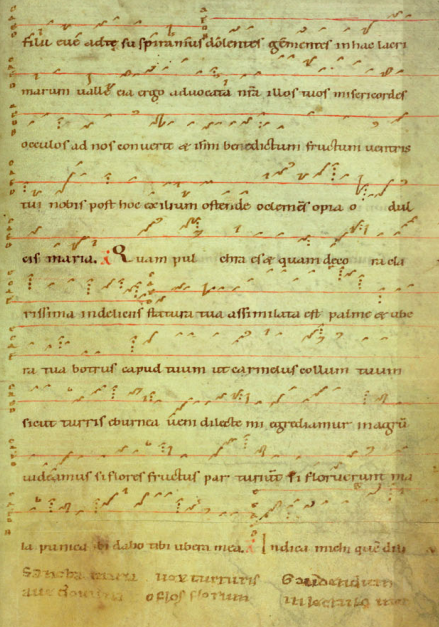 filii euę ad te suspiramus dolentes gementes in hac lacri
marum ualle eia ergo aduocata nr̄a illos tuos misericordes
occulos ad nos conuerte & ih̄m benedictum fructum uentris
tui nobis post hoc exilium ostende o clemēs o pia o dul
cis maria. A Quam pul chra es & quam deco ra cla
rissima in deliciis statura tua assimilata est palme & ube
ra tua botrus capud tuum ut carmelus collum tuum
sicut turris eburnea ueni dilecte mi egrediamur in agrū
uideamus si flores fructus par turiūt si floruerunt ma
la punica ibi dabo tibi ubera mea. A Indica michi quē dili
Sancta maria
aue o flos florum